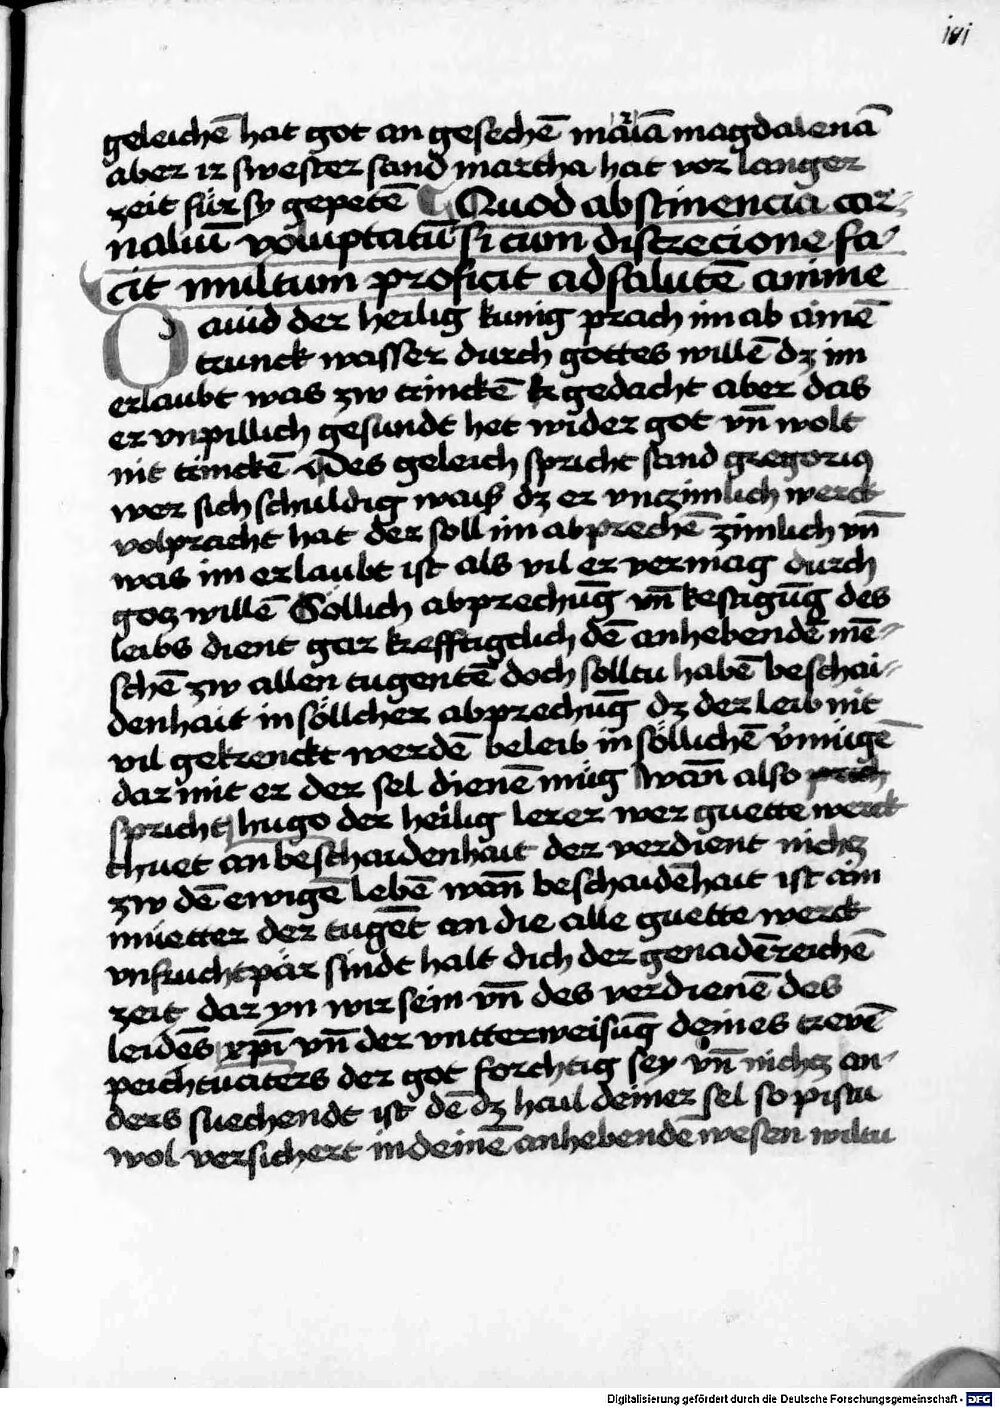 ivi
geleichē hat got an gesechē mariā magdalenā
aber ir swester sand martha hat vor langer
zeit für sy gepetē ¶ Quod abstinencia car-
naliū voluptatū si cum discrecione fa-
cit multum proficit ad salutē anime
Dauid der heilig kunig prach im ab ainē
trunck wasser durch gottes willē dz im
erlaubt was zw trinckē gedacht aber das
er vnpillich gesundt het wider got vn̄ wolt
nit trinckē Des geleich spricht sand gregoriꝯ
wer sich schuldig waiß dz er vnzimlich werck
volpracht hat der soll im abprechē zimlich vn̄
was im erlaubt ist als vil er vermag durch
gotz willē Söllich abprechūg vn̄ kestigūg des
leibs dient gar krefftigclich dē anhebendē mē-
schē zw allen tugentē doch solltu habē beschai-
denhait in söllcher abprechūg dz der leib nit
vil gekrenckt werdē beleib in söllichē v̓mügē
dar mit er der sel dienē müg Wān also
spricht hugo der heilig lerer wer guette werck
thuet an beschaidenhait der verdient nichtz
zw dē ewigē lebē wān beschaidēhait ist ain
muetter der tugēt an die alle guette werck
vnfruchtpär sindt halt dich der genadēreichē
zeit dar yn wir sein vn̄ des verdienē des
leidēs xp̄i vn̄ der vntterweisūg deines trewē
peichtuaters der got forchtig sey vn̄ nichtz an-
ders suechendt ist dē dz hail deiner sel so pistu
wol versichert in deinē anhebendē wesen wiltu
Digitalisierung gefördert durch die Deutsche Forschungsgemeinschaft - DFG